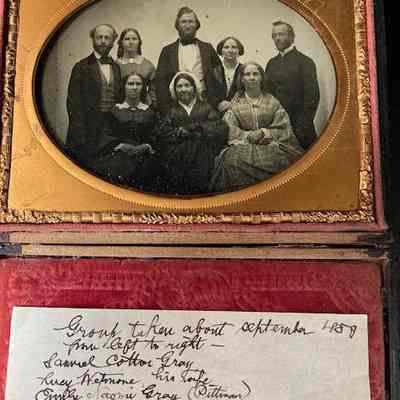 Group taken about september 1859
from left to right —
Samuel Cotton Gray
Lucy his wife
Emily Naomi Gray (Pittman)